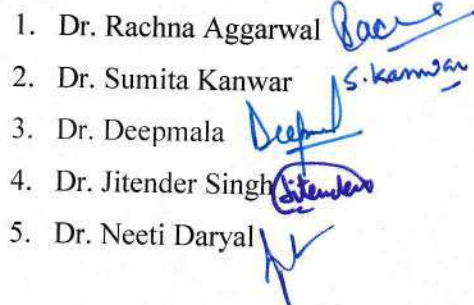 1. Dr. Rachna Aggarwal
2. Dr. Sumita Kanwar S. Kanwar
3. Dr. Deepmala
4. Dr. Jitender Singh Jitender
5. Dr. Neeti Daryal